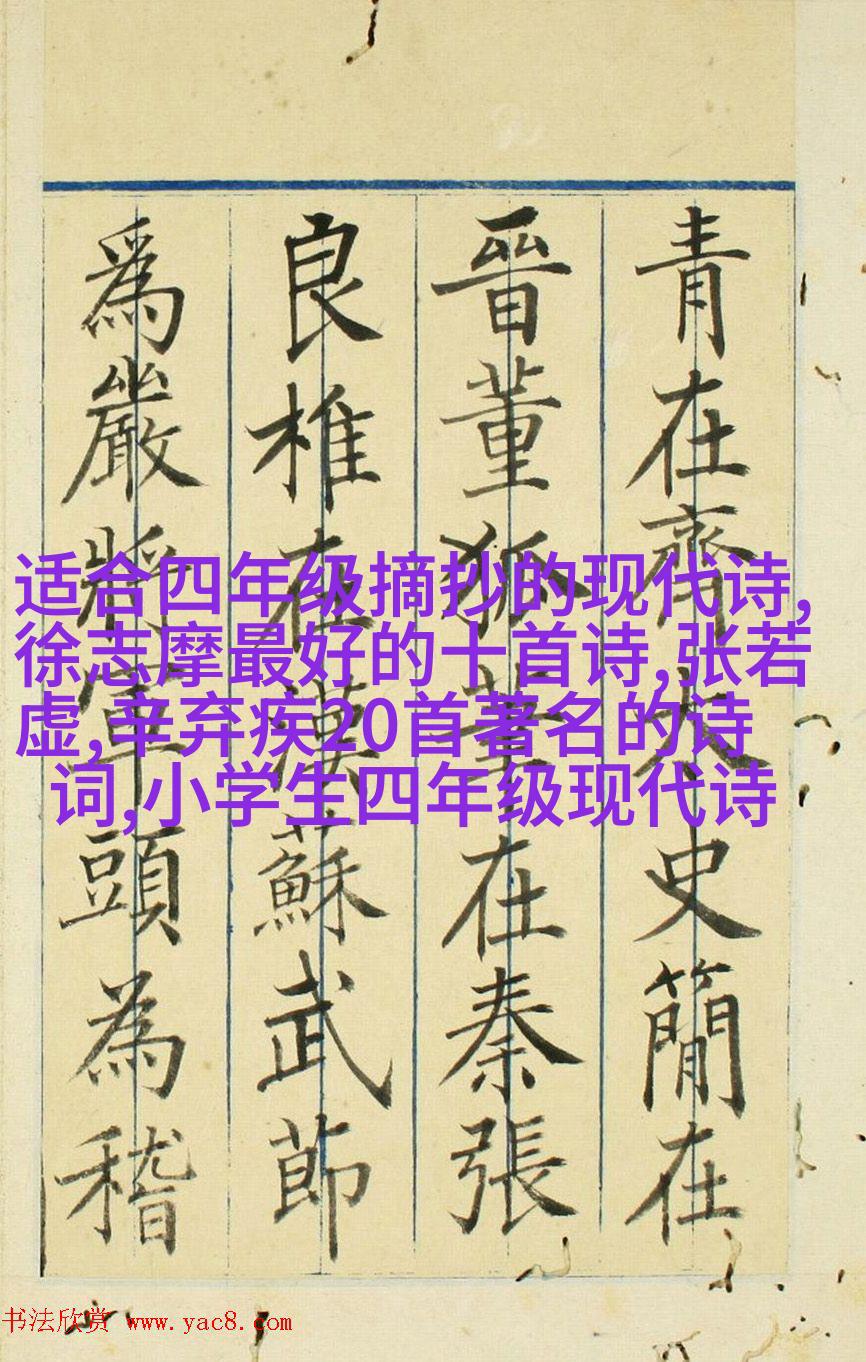 青在齊太史簡在
晉董狐筆在秦張
良椎在漢蘇武節
爲嚴將軍頭為稽
适合四年级摘抄的现代诗,
徐志摩最好的十首诗,张若
虚,辛弃疾20首著名的诗
词,小学生四年级现代诗
书法欣赏 www.yac8.com